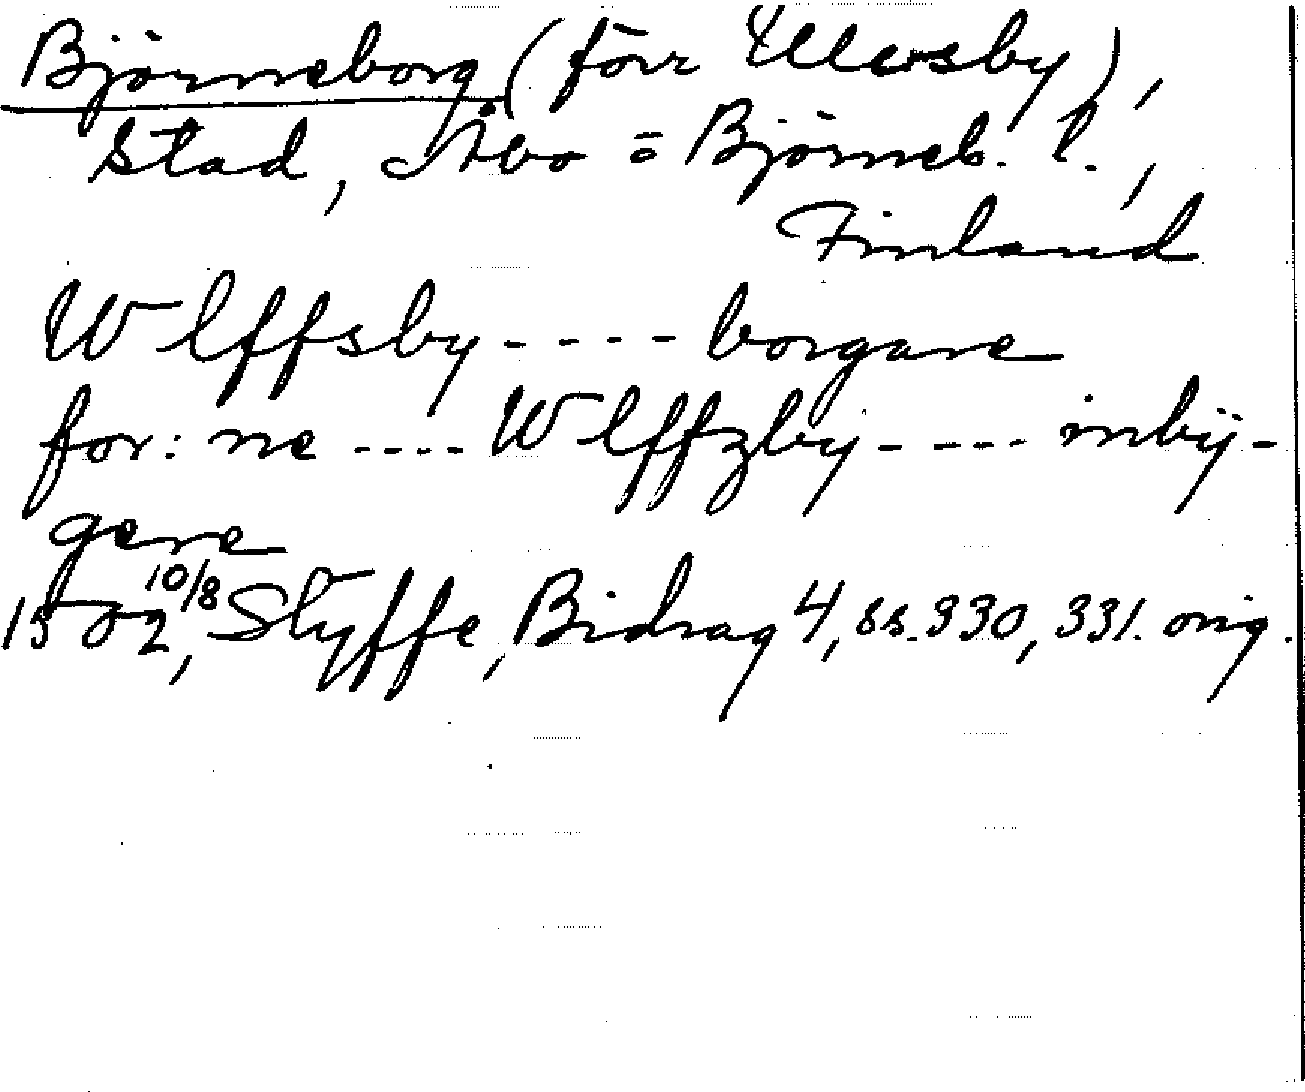 Björneborg (förr Ulvsby),
stad, Åbo = Björneb. l.,
Finland
Wlffsby - - - - borgare
for: ne - - - - Wlffzby - - - - inbÿ-
gere
1502 10/8, Styffe, Bidrag 4, ss. 330, 331. orig.